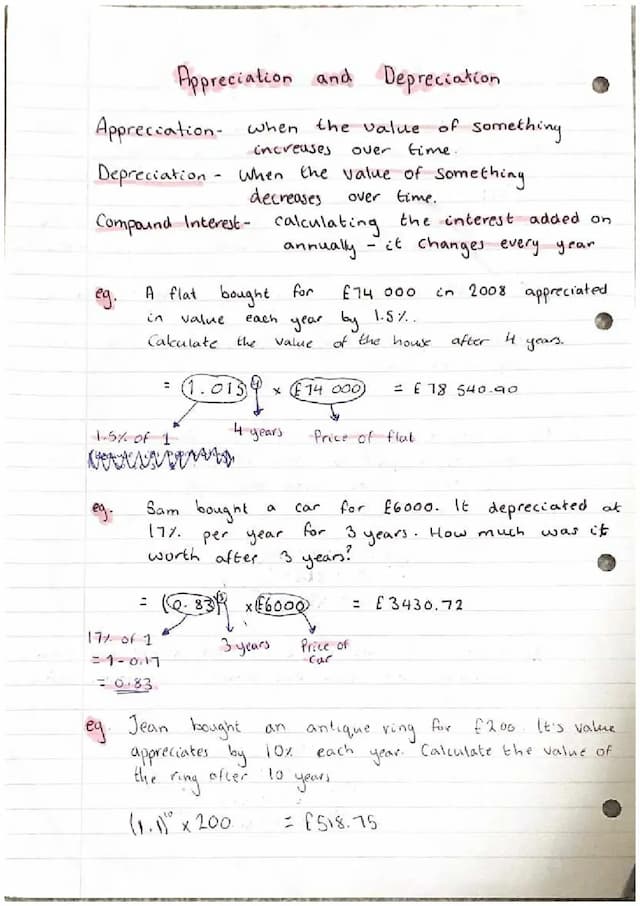 Appreciation and Depreciation
Appreciation - when the value of something
increases over time.
Depreciation - when the value of something
decreases over time.
Compound Interest - calculating the interest added on
annually - it changes every year
eg. A flat bought for £74 000 in 2008 appreciated
in value each year by 1.5%.
Calculate the value of the house after 4 years.
= (1.015)⁴ × £74 000 = £78 540.90
1.5% of 1 4 years Price of flat
eg. Sam bought a car for £6000. It depreciated at
17% per year for 3 years. How much was it
worth after 3 years?
= (0.83)³ × £6000 = £3430.72
17% of 1 3 years Price of
= 1 - 0.17 car
= 0.83
eg. Jean bought an antique ring for £200. It's value
appreciates by 10% each year. Calculate the value of
the ring after 10 years
(1.1)¹⁰ × 200 = £518.75